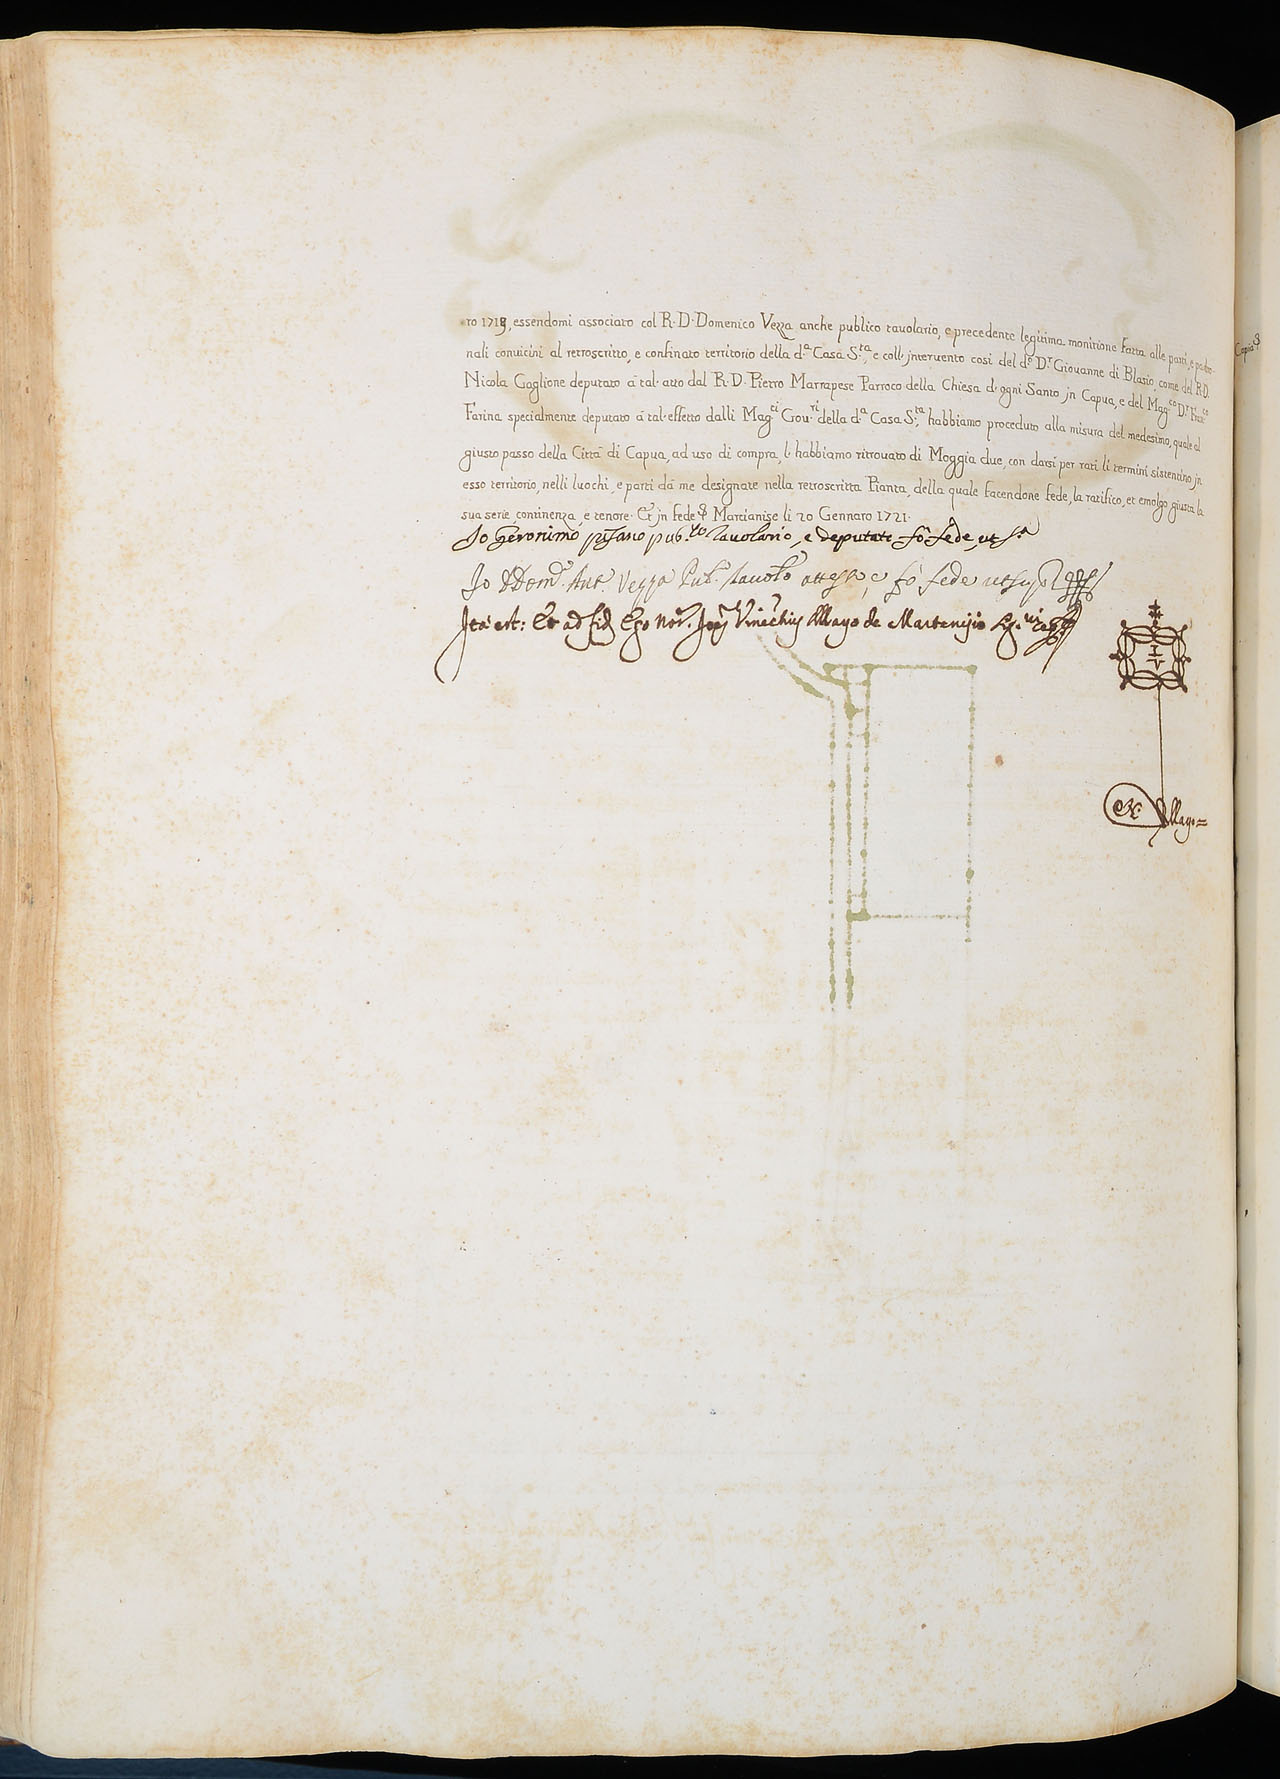 ro 1719, essendomi associato col R. D. Domenico Vezza anche publico tauolario, e precedente legitima monitione fatta alle parti, e padro-
nali conuicini al retroscritto, e confinato territorio della d.ª Casa S.ta, e coll'interuento così del d.º D.r Giouanne di Blasio, come del R. D.
Nicola Gaglione deputato á tal' atto dal R. D. Pietro Marrapese Parroco della Chiesa d'ogni Santo jn Capua, e del Mag.co D.r Fran.co
Farina specialmente deputato á tal' effetto dalli Mag.ci Gou.ri della d.ª Casa S.ta, habbiamo proceduto alla misura del medesimo, quale al
giusto passo della Cittá di Capua, ad uso di compra, l' habbiamo ritrouato di Moggia due, con darsi per rati li termini sistentino jn
esso territorio, nelli luochi, e parti dá me designate nella retroscritta Pianta, della quale facendone fede, la ratifico, et emolgo giusta la
sua serie, continenza, e tenore. Et jn fede &c. Marcianise li 20 Gennaro 1721.
Io Geronimo pisano pub.co tauolario, e deputato fò fede, ut s.ª
Io D Dom.co Ant.º Vezza Pub.º tauol.º attesto, e fò fede ut sup.ª
Ita est: Et ad fid. Ego Not.r Mayo de Martenisio
Mayo=
Copia